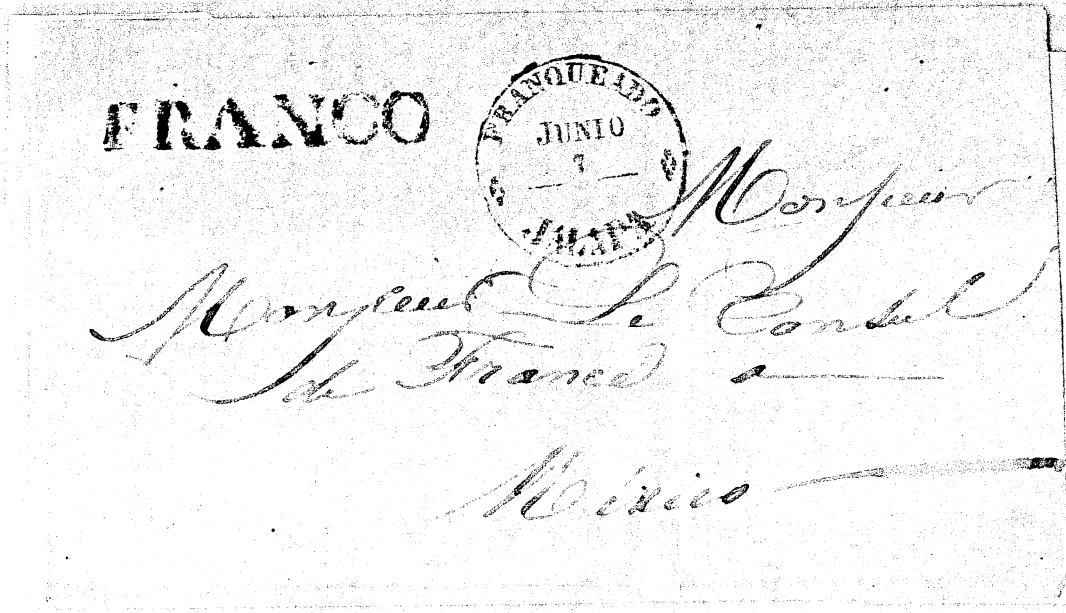 FRANCO
FRANQUEADO
JUNIO
7
JALAPA
Monsieur
Monsieur Le Consul
de France a
México